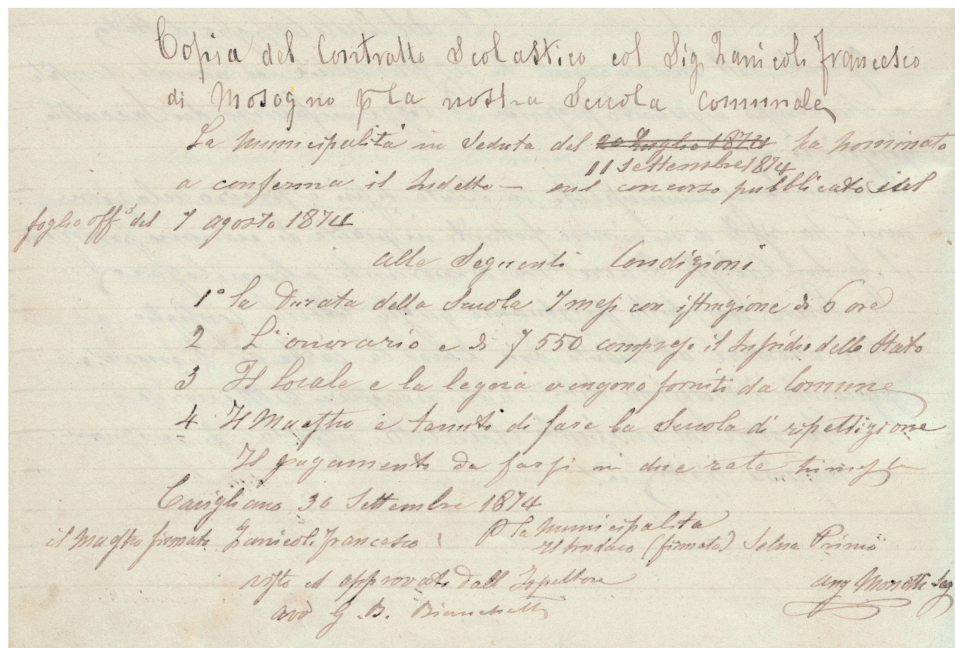 Copia del Contratto Scolastico col Sig Zanicoli Francesco
di Mosogno p la nostra Scuola Comunale
La Municipalità in Seduta del 20 Luglio 1874 ha nominato
11 Settembre 1874
a conferma il sudetto – sul concorso pubblicato del
foglio off.º del 7 agosto 1874
alle Seguenti Condizioni
1º la Durata della Scuola 7 mesi con istruzione di 6 ore
2 L'onorario e di f 550 compreso il sussidio dello Stato
3 Il locale e la legna vengono forniti da Comune
4 Il Maestro è tenuti di fare la Scuola di ripettizione
Il pagamento da farsi in due rate
Cavigliano 30 Settembre 1874
p la Municipalità
il Maestro firmato Zanicoli Francesco Il sindaco (firmato) Selna Primo
visto ed approvato dall Ispettore Ang Monotti Seg
avv G. B. Bianchetti